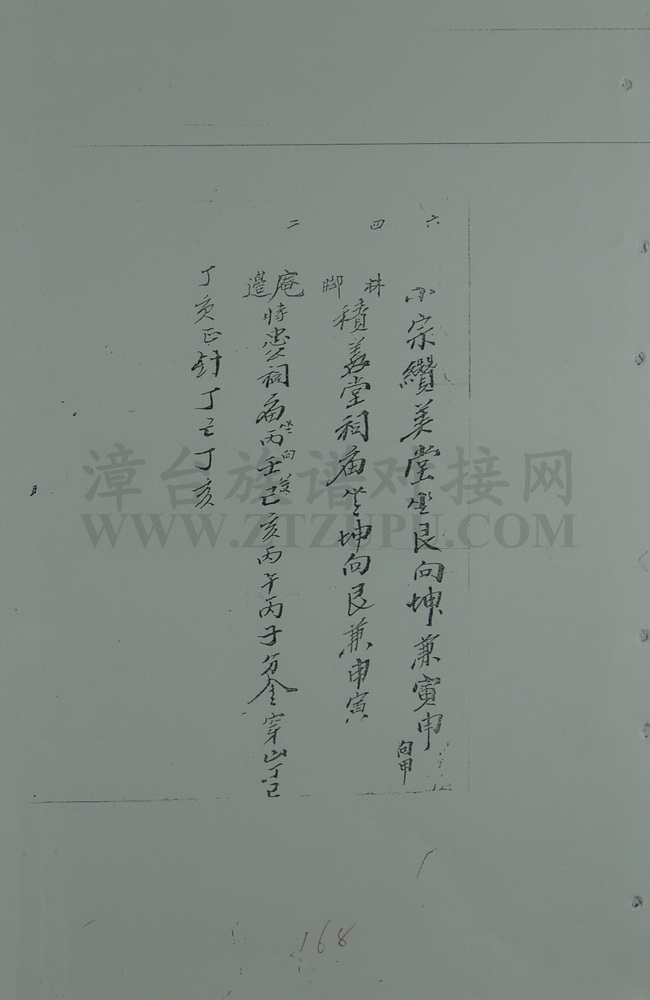 六
小宗纘美堂坐艮向坤兼寅申
向甲
四
林
脚
積善堂祠庙坐坤向艮兼申寅
二
庵
邊
时忠公祠庙丙壬
坐向兼
己亥丙午丙子分金穿山丁己
丁亥正針丁己丁亥
漳台族谱对接网
WWW.ZTZUPU.COM
168